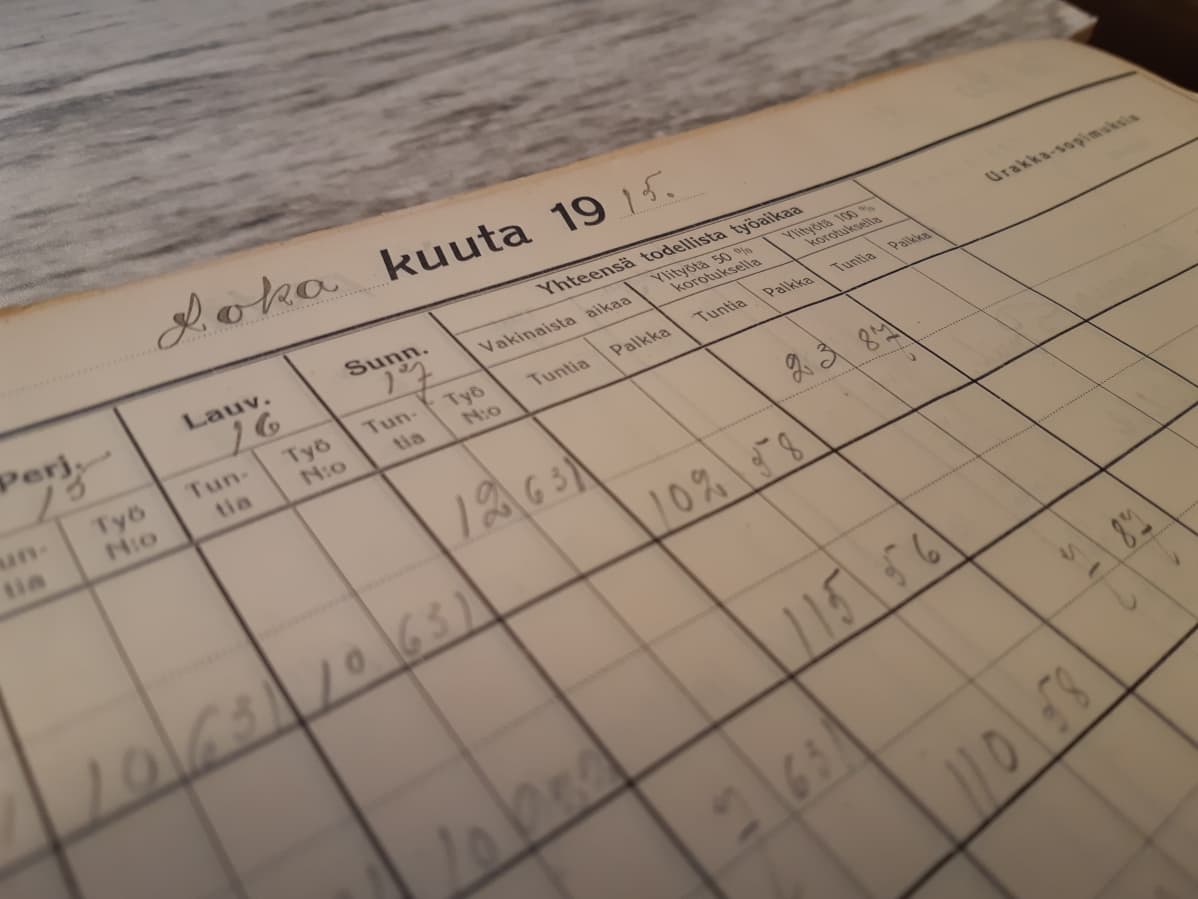 Loka kuuta 1915.
Perj. Lauv. Sunn. Yhteensä todellista työaikaa Urakka-sopimuksia
15 16 17 Vakinaista aikaa Ylityötä 50 % korotuksella Ylityötä 100 % korotuksella
Työ N:o Tun-tia Työ N:o Tun-tia Työ N:o Tuntia Palkka Tuntia Palkka Tuntia Palkka
12 631 23 87
102 58
10 631 10 631 115 56
7 87
10 7 631 110 58